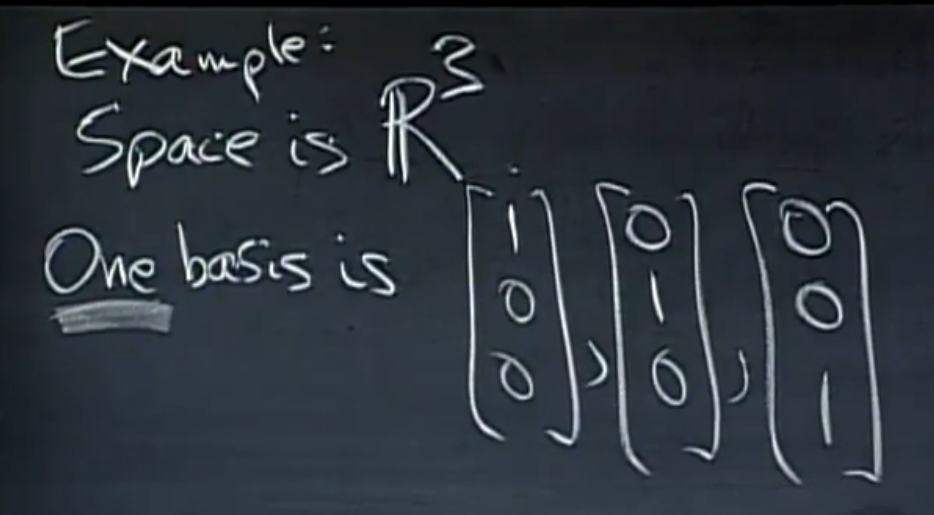 Example:
Space is ℝ³
One basis is [1 0 0], [0 1 0], [0 0 1]